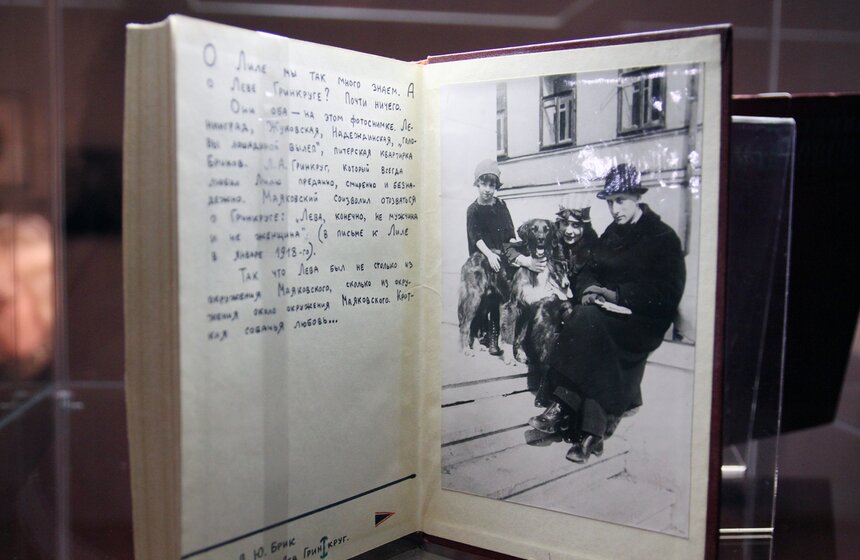 О Лиле мы так много знаем. А
о Леве Гринкруге? Почти ничего.
Они оба — на этом фотоснимке. Ле-
нинград, Жуковская, Надеждинская, „голо-
вы лошадиной вылеп", питерская квартира
Бриков. Л.А. Гринкруг, который всегда
любил Лилю преданно, смиренно и безна-
дежно. Маяковский соизволил отозваться
о Гринкруге: „Лева, конечно, не мужчина
и не женщина". (в письме к Лиле
в январе 1918-го).
Так что Лева был не столько из
окружения Маяковского, сколько из окру-
жения около окружения Маяковского. Крот-
кая собачья любовь...
Ю. Брик
Гринкруг.